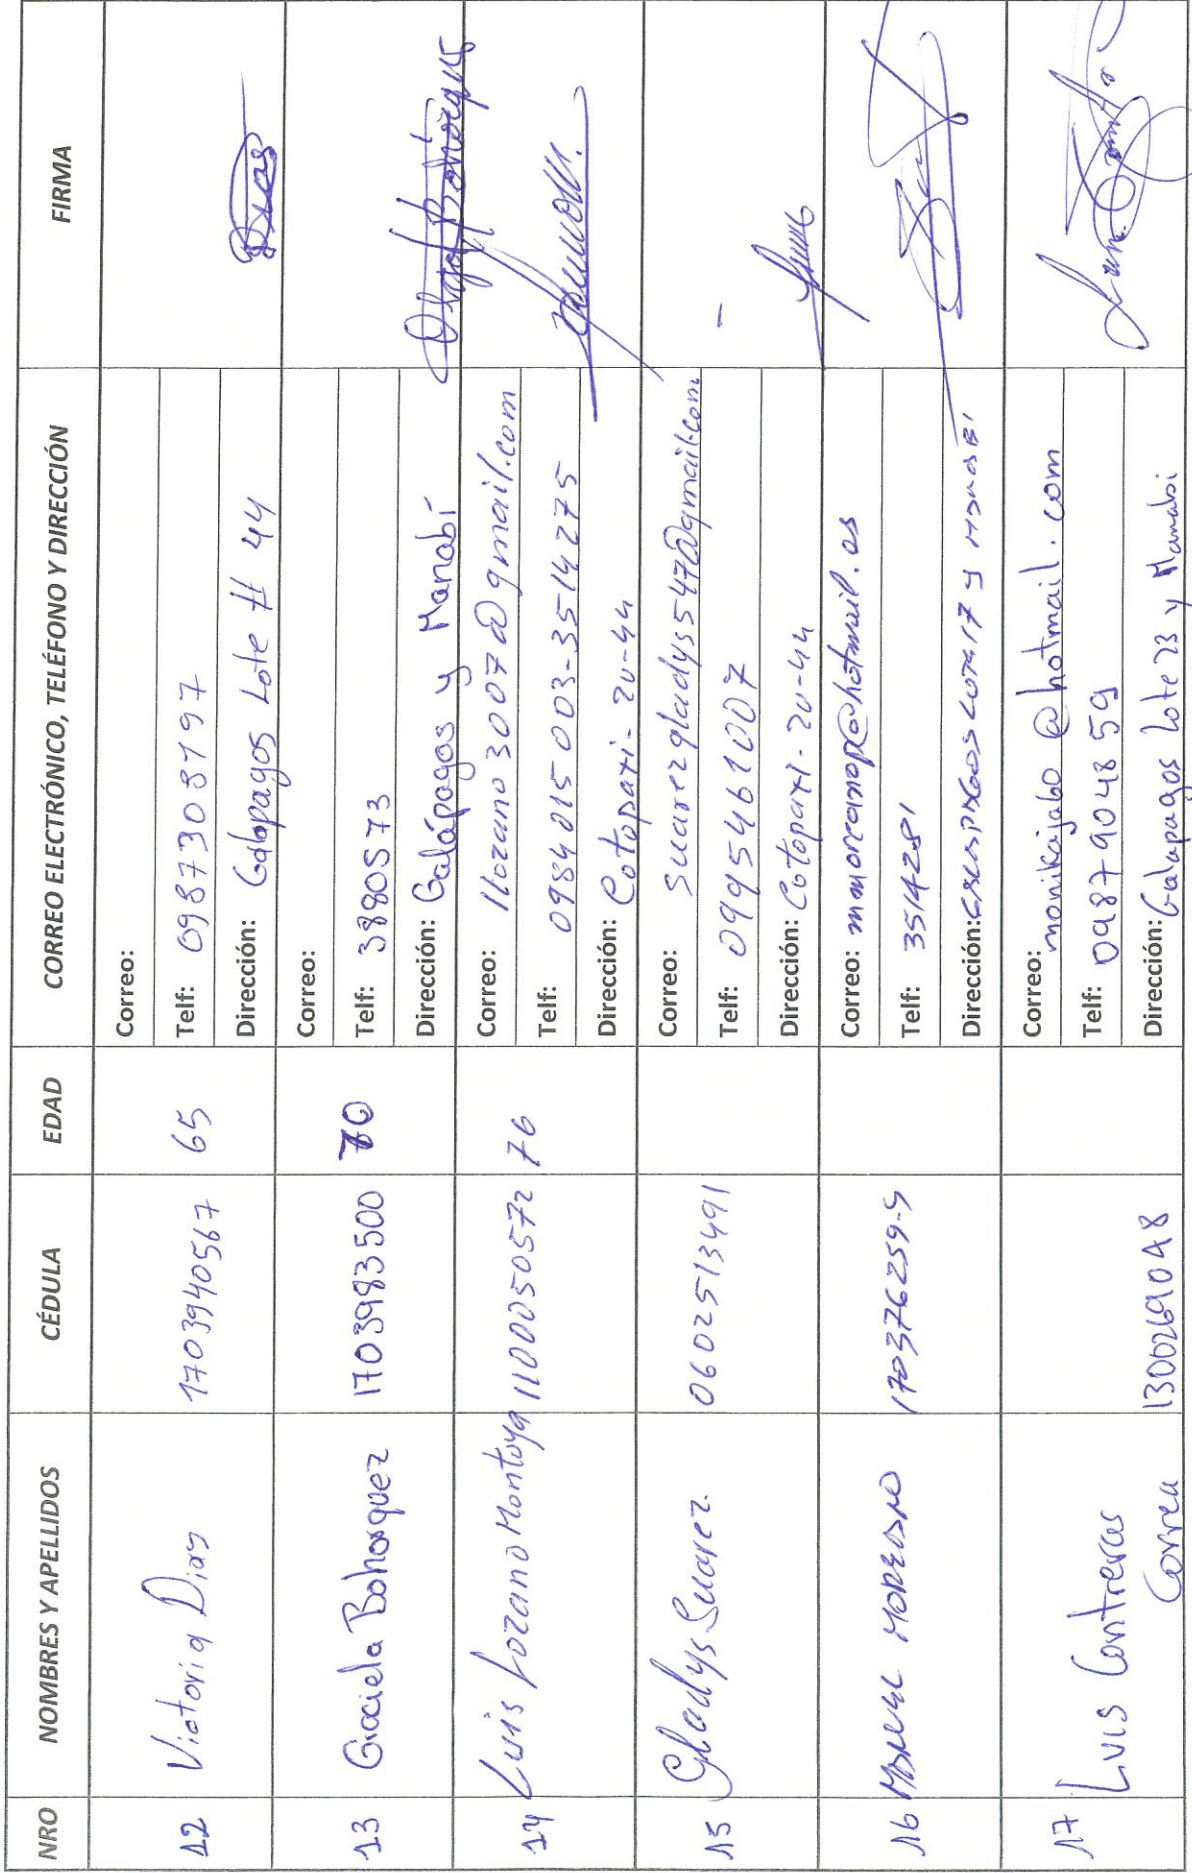 NRO NOMBRES Y APELLIDOS CÉDULA EDAD CORREO ELECTRÓNICO, TELÉFONO Y DIRECCIÓN FIRMA
12 Victoria Dias 1703940567 65
Correo:
Telf: 0987308197
Dirección: Galapagos Lote # 44
13 Graciela Bohorquez 1703983500 70
Correo:
Telf: 3880573
Dirección: Galápagos y Manabí
14 Luis Lozano Montoya 1100050572 76
Correo: llozano3007@gmail.com
Telf: 0984015003-3514275
Dirección: Cotopaxi-20-44
15 Gladys Suarez 0602513491
Correo: suarezgladys547@gmail.com
Telf: 0995461007
Dirección: Cotopaxi-20-44
16 MANUEL MOREANO 170376259-5
Correo: mmoreanop@hotmail.es
Telf: 3514281
Dirección: GALAPAGOS LOTE 17 y MANABI
17 Luis Contreras Correa 1300269048
Correo: monikajabo@hotmail.com
Telf: 0987904859
Dirección: Galapagos Lote 23 y Manabi